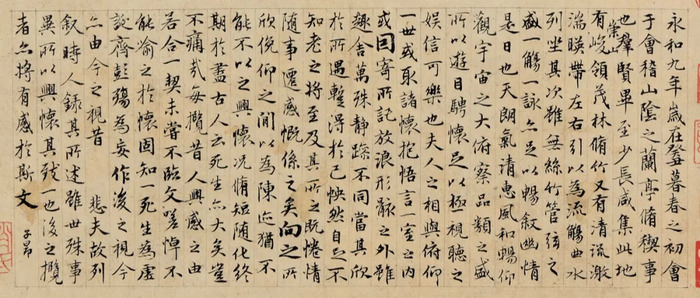 永和九年歲在癸丑暮春之初會
于會稽山陰之蘭亭脩稧事
也羣賢畢至少長咸集此地
有崇山峻領茂林脩竹又有清流激
湍暎帶左右引以為流觴曲水
列坐其次雖無絲竹管弦之
盛一觴一詠亦足以暢叙幽情
是日也天朗氣清惠風和暢仰
觀宇宙之大俯察品類之盛
所以遊目騁懷足以極視聽之
娛信可樂也夫人之相與俯仰
一世或取諸懷抱悟言一室之內
或因寄所託放浪形骸之外雖
趣舍萬殊靜躁不同當其欣
於所遇蹔得於己怏然自足不
知老之將至及其所之既惓情
隨事遷感慨係之矣向之所
欣俛仰之間以為陳迹猶不
能不以之興懷況脩短隨化終
期於盡古人云死生亦大矣豈
不痛哉每攬昔人興感之由
若合一契未嘗不臨文嗟悼不
能喻之於懷固知一死生為虛
誕齊彭殤為妄作後之視今
亦由今之視昔 悲夫故列
叙時人錄其所述雖世殊事
異所以興懷其致一也後之攬
者亦將有感於斯文 子昂